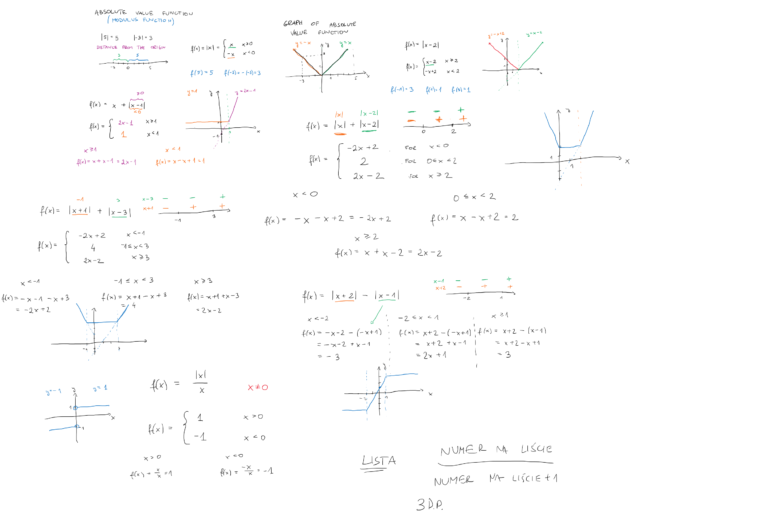 ABSOLUTE VALUE FUNCTION
(MODULUS FUNCTION)
|3| = 3 |-3| = 3
DISTANCE FROM THE ORIGIN
f(x) = |x| = { x x≥0
-x x<0
f(3) = 3 f(-3) = -(-3) = 3
GRAPH OF ABSOLUTE
VALUE FUNCTION
y=-x y=x
f(x) = |x-2|
f(x) = { x-2 x≥2
-x+2 x<2
f(-1) = 3 f(1) = 1
f(x) = x + |x-1|
f(x) = { 2x-1 x≥1
1 x<1
x≥1 x<1
f(x) = x + x-1 = 2x-1 f(x) = x-x+1 = 1
y=1 y=2x-1
|x| |x-2|
f(x) = |x| + |x-2|
- - +
- + +
0 2
f(x) = { -2x+2 FOR x<0
2 FOR 0≤x<2
2x-2 FOR x≥2
x<0 0≤x<2
f(x) = -x-x+2 = -2x+2 f(x) = x-x+2 = 2
x≥2
f(x) = x+x-2 = 2x-2
f(x) = |x+1| + |x-3|
x-3 - - +
x+1 - + +
-1 3
f(x) = { -2x+2 x<-1
4 -1≤x<3
2x-2 x≥3
x<-1 -1≤x<3 x≥3
f(x) = -x-1-x+3 f(x) = x+1-x+3 f(x) = x+1+x-3
= -2x+2 = 4 = 2x-2
f(x) = |x+2| - |x-1|
-2 1
x<-2 -2≤x<1 x≥1
f(x) = -x-2-(-x+1) f(x) = x+2-(-x+1) f(x) = x+2-(x-1)
= -x-2+x-1 = x+2+x-1 = x+2-x+1
= -3 = 2x+1 = 3
y=-1 y=1
f(x) = |x|/x x≠0
f(x) = { 1 x>0
-1 x<0
x>0 x<0
f(x) = x/x = 1 f(x) = -x/x = -1
LISTA
NUMER NA LIŚCIE
NUMER NA LIŚCIE+1
3 D.P.